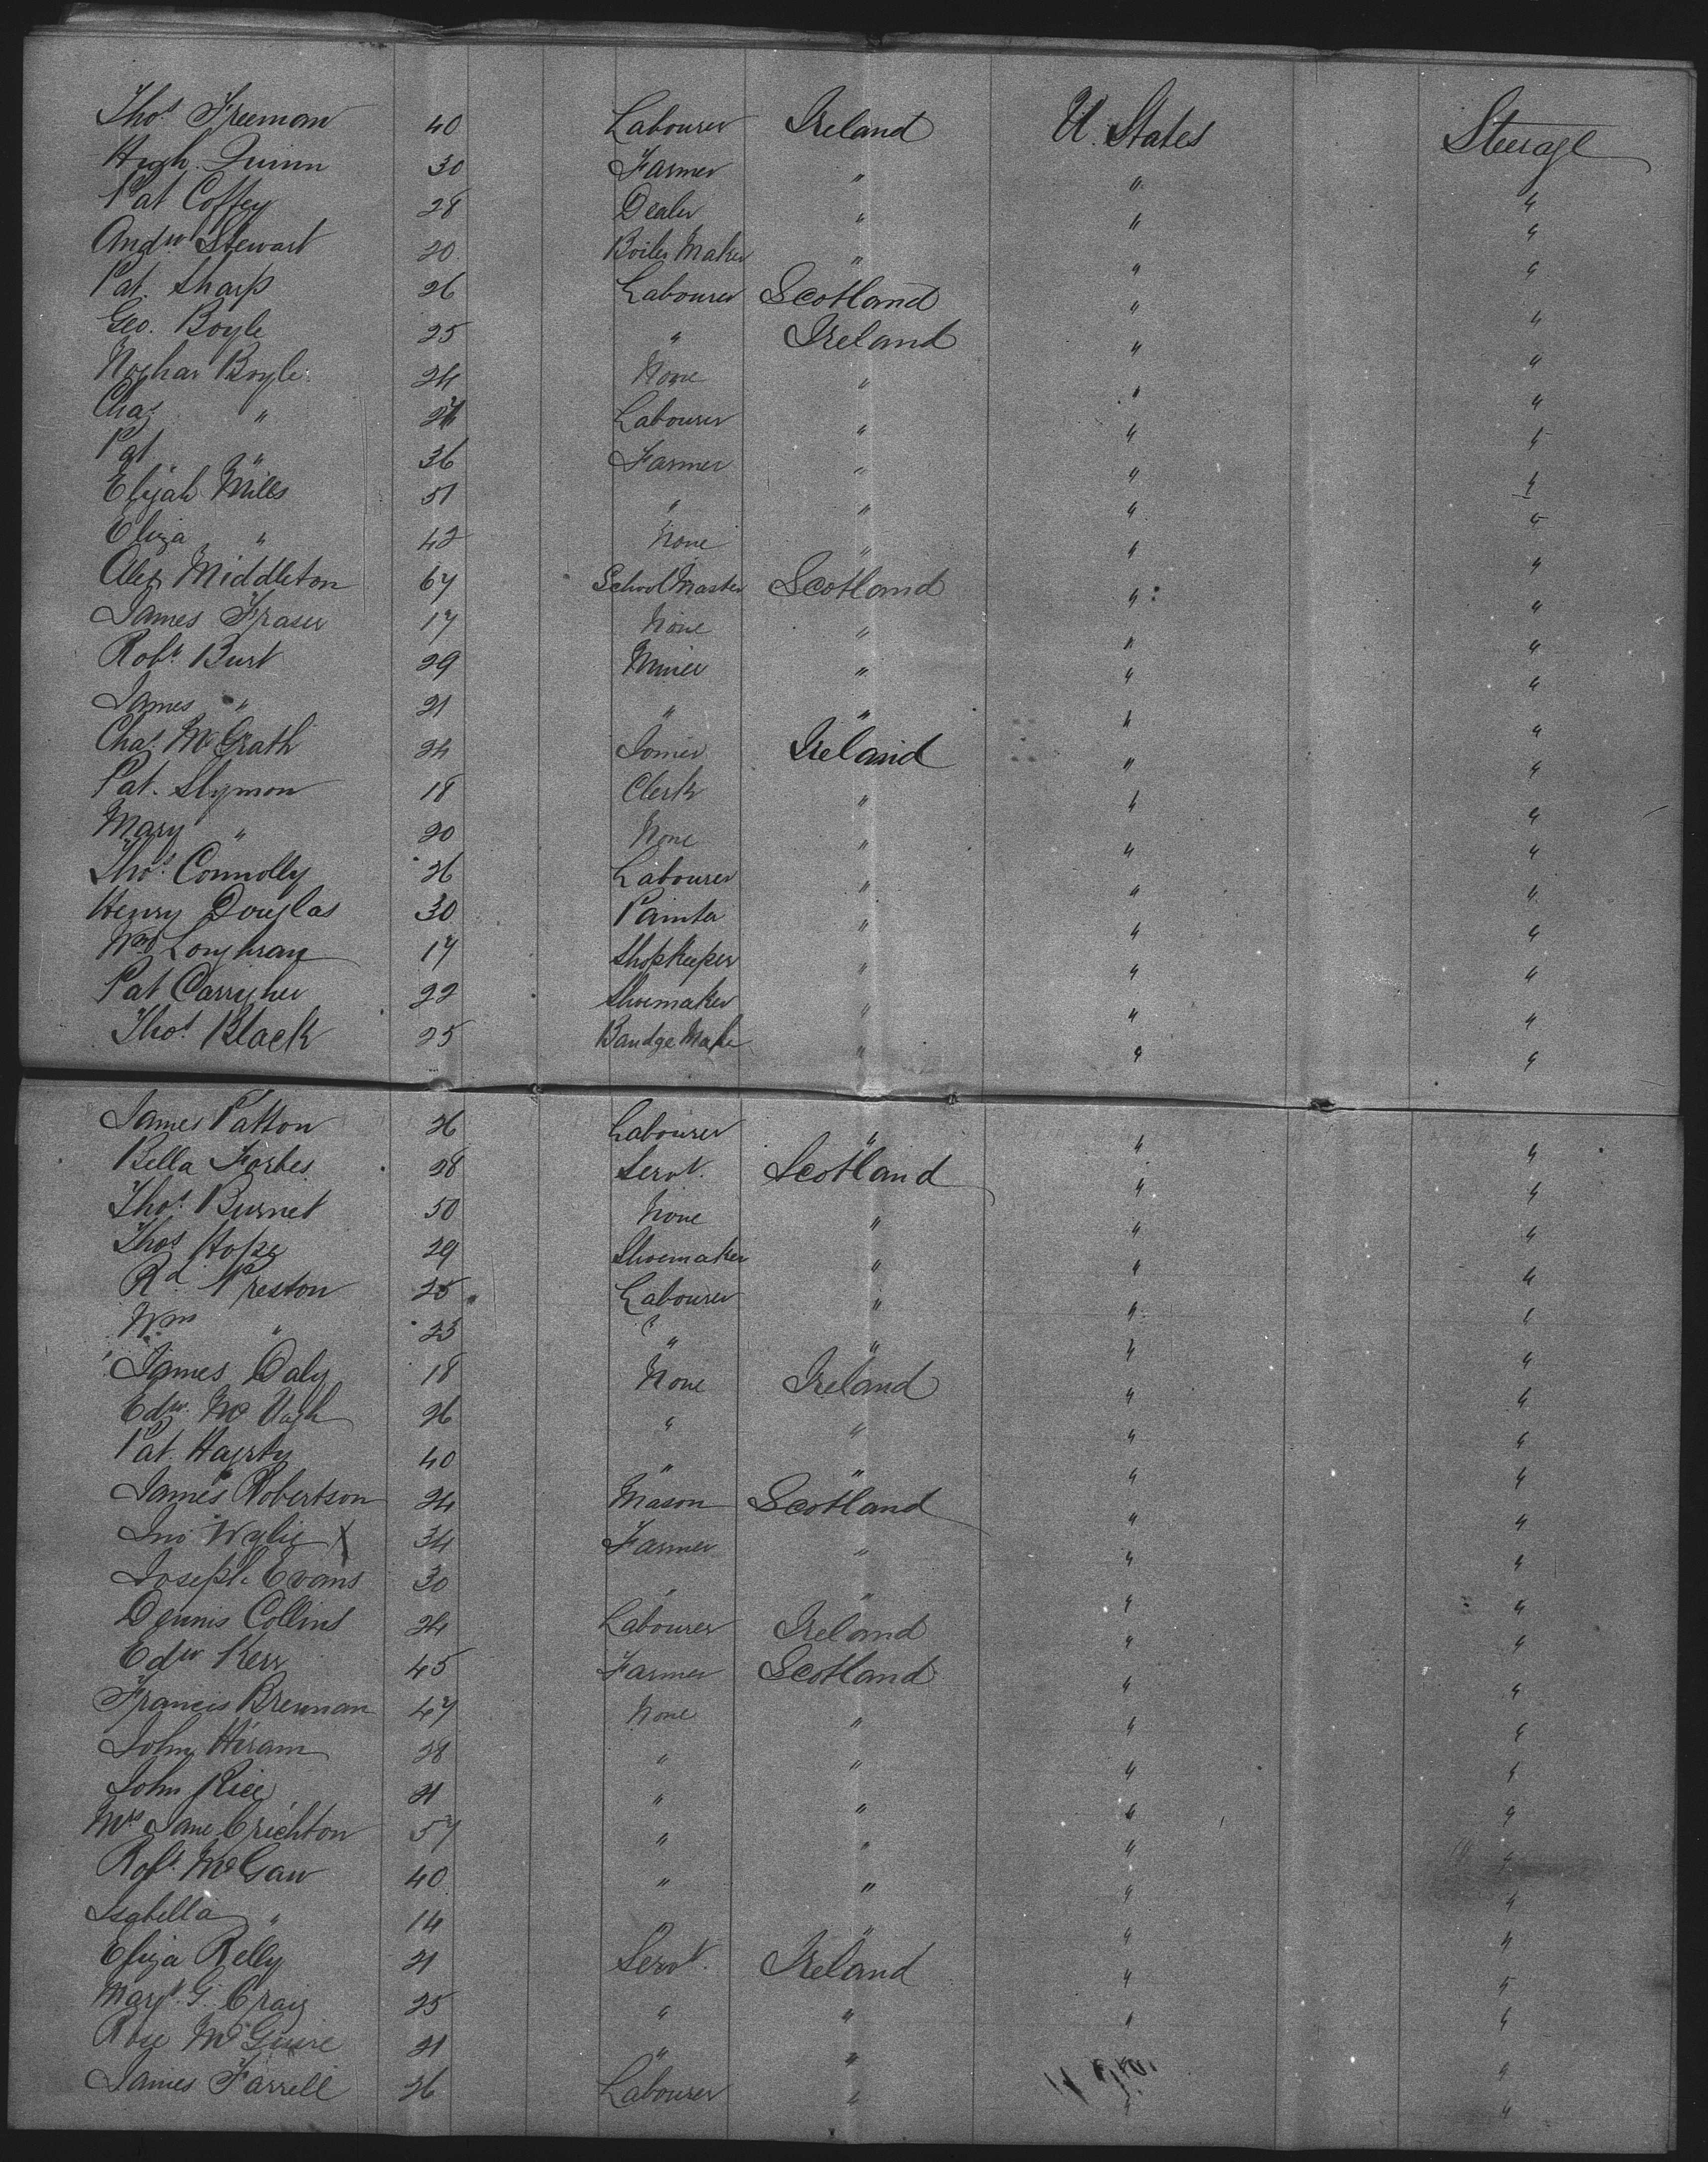 Thos. Freeman 40 Labourer Ireland U. States Steerage
Hugh Quinn 30 Farmer " " "
Pat Coffey 28 Dealer " " "
Andw Stewart 20 Boiler Maker " " "
Pat. Sharp 26 Labourer Scotland " "
Geo. Boyle 25 " Ireland " "
Boyle 24 None " " "
Chas " Labourer " " "
Pat " 36 Farmer " " "
Elijah Mills 51 " " " "
Eliza " 42 None " " "
Alex Middleton 67 School Master Scotland " "
James Fraser 17 None " " "
Robt. Burt 29 Miner " " "
James " 21 " " " "
Chas. McGrath 24 Joiner Ireland " "
Pat. Slymon 18 Clerk " " "
Mary " 20 None " " "
Thos. Connolly 26 Labourer " " "
Henry Douglas 30 Painter " " "
Wm Loughran 17 Shopkeeper " " "
Pat Carragher 22 Shoemaker " " "
Thos. Black 25 " " "
James Patton 26 Labourer " " "
Bella Forbes 28 Servt. Scotland " "
Thos. Burnet 50 None " " "
Thos Hope 29 Shoemaker " " "
Rd. Preston 25 Labourer " " "
Wm " 23 " " " "
James Daly 18 None Ireland " "
Edw. 26 " " " "
Pat. Hagerty 40 " " " "
James Robertson 24 Mason Scotland " "
Jno Wylie X 34 Farmer " " "
Joseph Evans 30 " " " "
Dennis Collins 24 Labourer Ireland " "
Edw Kerr 45 Farmer Scotland " "
Francis Brennan 47 None " " "
John Hiram 28 " " " "
John Rice 21 " " " "
Mrs Jane Crichton 57 " " " "
Robt. McGaw 40 " " " "
Isabella " 14 " " "
Eliza Kelly 21 Servt. Ireland " "
Margt. G. Craig 25 " " " "
Rose McGuire 21 " " "
James Farrell 26 Labourer " " "